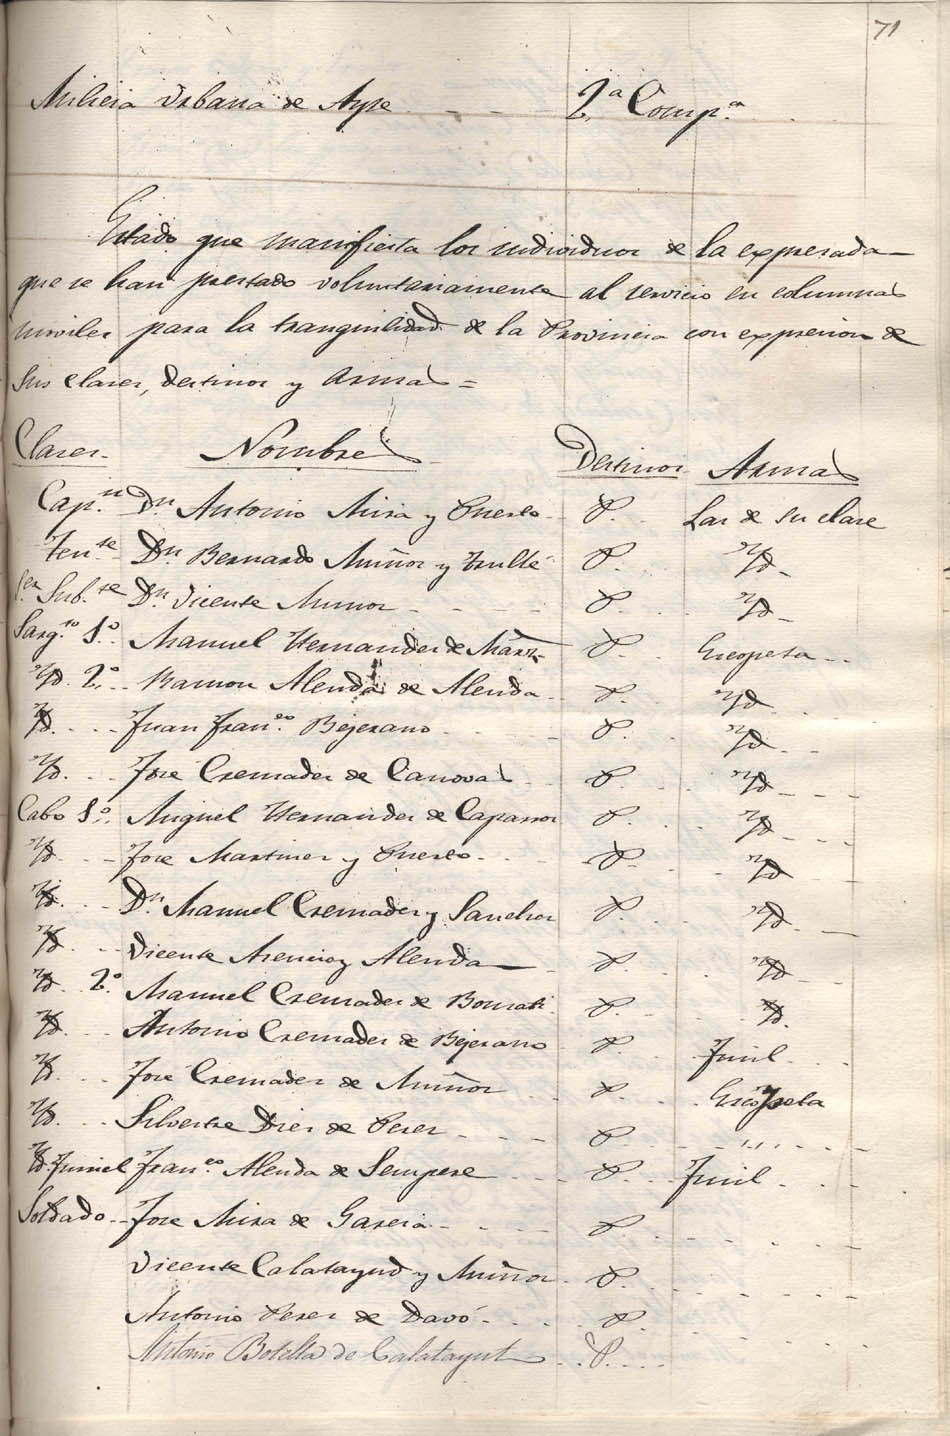 71
Milicia Urbana de Aspe - - - 2ª Comp.ª
Estado que manifiesta los individuos de la expresada
que se han prestado voluntariamente al servicio en columnas
moviles para la tranquilidad de la Provincia con expresion de
sus clases, destinos y armas =
Clases. Nombres Destinos Armas
Cap.n Dn Antonio Mira y Puerto P. Las de su clase
Ten.te Dn Bernardo Muñoz y P. Yd
Sub.te Dn Vicente Munnos P. Yd
Sarg.to 1.º Manuel Hernandes de Mart.z P. Escopeta
Yd. 2.º Ramon Alenda de Alenda P. Yd
Yd. Juan Fran.co Bejerano P. Yd
Yd. Jose Cremades de Canovas P. Yd
Cabo 1.º Miguel Hernandes de Caparros P. Yd
Yd Jose Martines y Puerto P. Yd
Yd. Dn Manuel Cremades y Sanches P. Yd
Yd. Vicente Asencio y Alenda P. Yd
Yd. 2.º Manuel Cremades de Bonmati P. Yd.
Yd. Antonio Cremades de Bejerano P. Fusil
Yd. Jose Cremades de Muñoz P. Escopeta
Yd. Silvestre Dies de Peres P. " "
Yd. Fran.co Alenda de Sempere P. Fusil
Soldado Jose Mira de Garcia P.
Vicente Calatayud y Muñoz P.
Antonio Peres de Davó P.
Antonio Botella de Calatayut P.